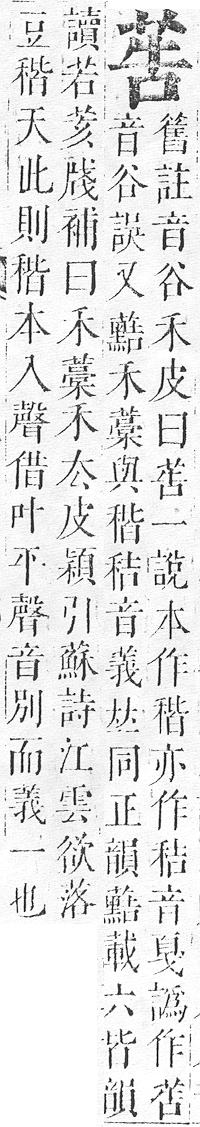 舊註音谷禾皮曰一說本作稭亦作秸音戛譌作
音谷誤又禾藁與稭秸音義𠀤同正韻載六皆韻
讀若荄牋補曰禾藁禾去皮穎引蘇詩江雲欲落
豆稭天此則稭本入聲借叶平聲音別而義一也